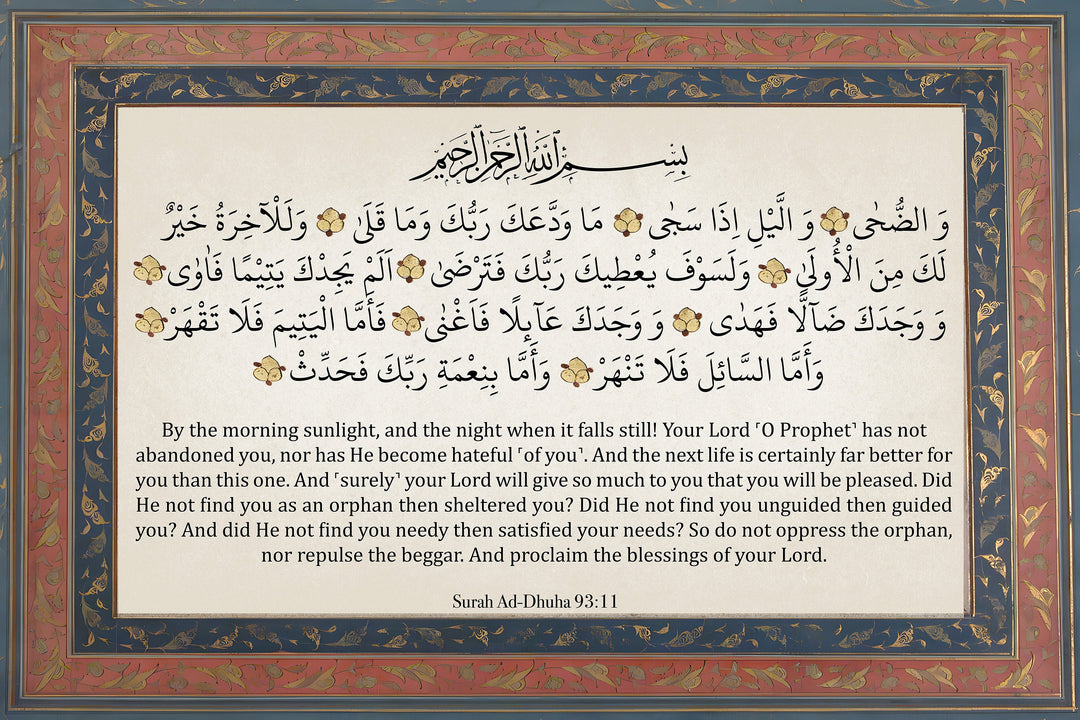 بِسْمِ اللهِ الرَّحْمٰنِ الرَّحِيْمِ
وَ الضُّحٰى وَ الَّيْلِ اِذَا سَجٰى مَا وَدَّعَكَ رَبُّكَ وَمَا قَلَىٰ وَلَلْآخِرَةُ خَيْرٌ
لَكَ مِنَ الْأُولَىٰ وَلَسَوْفَ يُعْطِيكَ رَبُّكَ فَتَرْضَىٰ اَلَمْ يَجِدْكَ يَتِيْمًا فَاٰوٰى
وَ وَجَدَكَ ضَآلًّا فَهَدٰى وَ وَجَدَكَ عَآىِٕلًا فَاَغْنٰى فَأَمَّا الْيَتِيمَ فَلَا تَقْهَرْ
وَأَمَّا السَّائِلَ فَلَا تَنْهَرْ وَأَمَّا بِنِعْمَةِ رَبِّكَ فَحَدِّثْ
By the morning sunlight, and the night when it falls still! Your Lord ˹O Prophet˺ has not
abandoned you, nor has He become hateful ˹of you˺. And the next life is certainly far better for
you than this one. And ˹surely˺ your Lord will give so much to you that you will be pleased. Did
He not find you as an orphan then sheltered you? Did He not find you unguided then guided
you? And did He not find you needy then satisfied your needs? So do not oppress the orphan,
nor repulse the beggar. And proclaim the blessings of your Lord.
Surah Ad-Dhuha 93:11